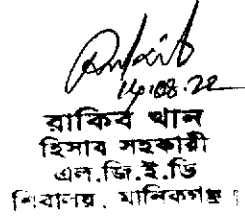 14.08.22
রাকিব খান
হিসাব সহকারী
এল.জি.ই.ডি
শিবালয়, মানিকগঞ্জ।